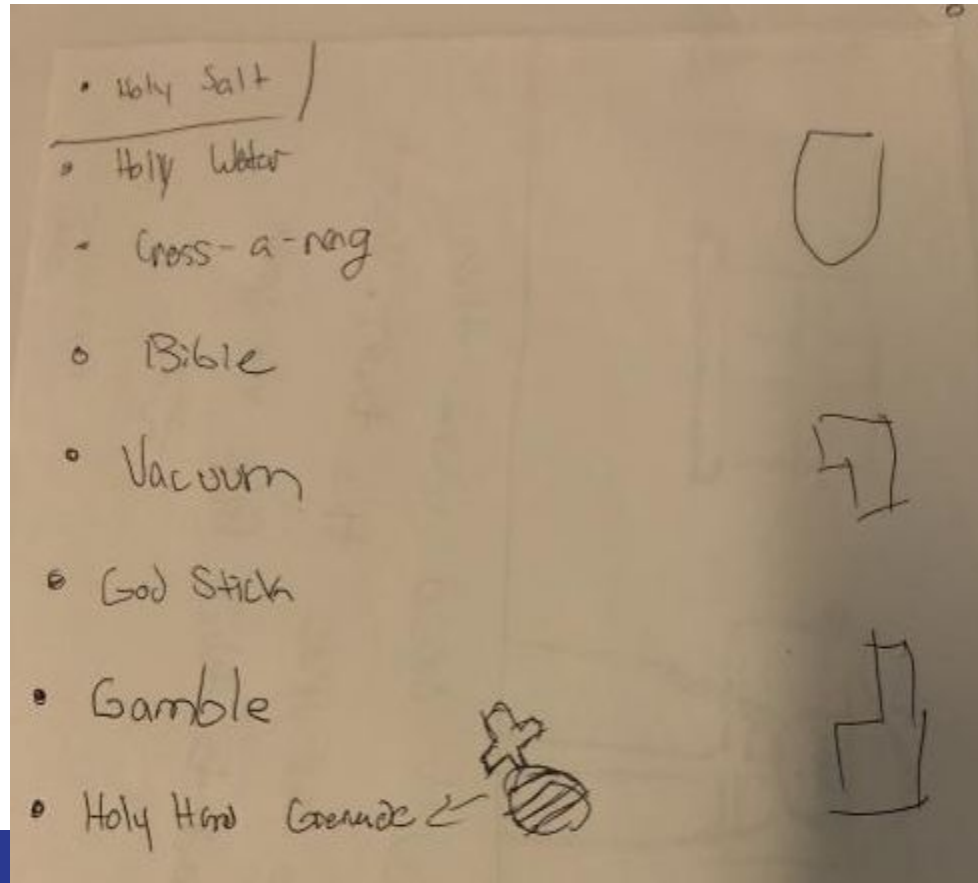 • Holy Salt
• Holy Water
- Cross-a-rang
• Bible
• Vacuum
• God Stick
• Gamble
• Holy Hand Grenade